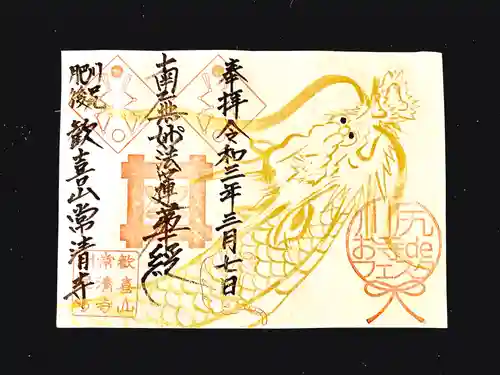 奉拝 令和三年三月七日
南無妙法蓮華経
肥後
川尻
歓喜山 常清寺
歓喜山
常清寺
川尻
de
お寺
フェスタ